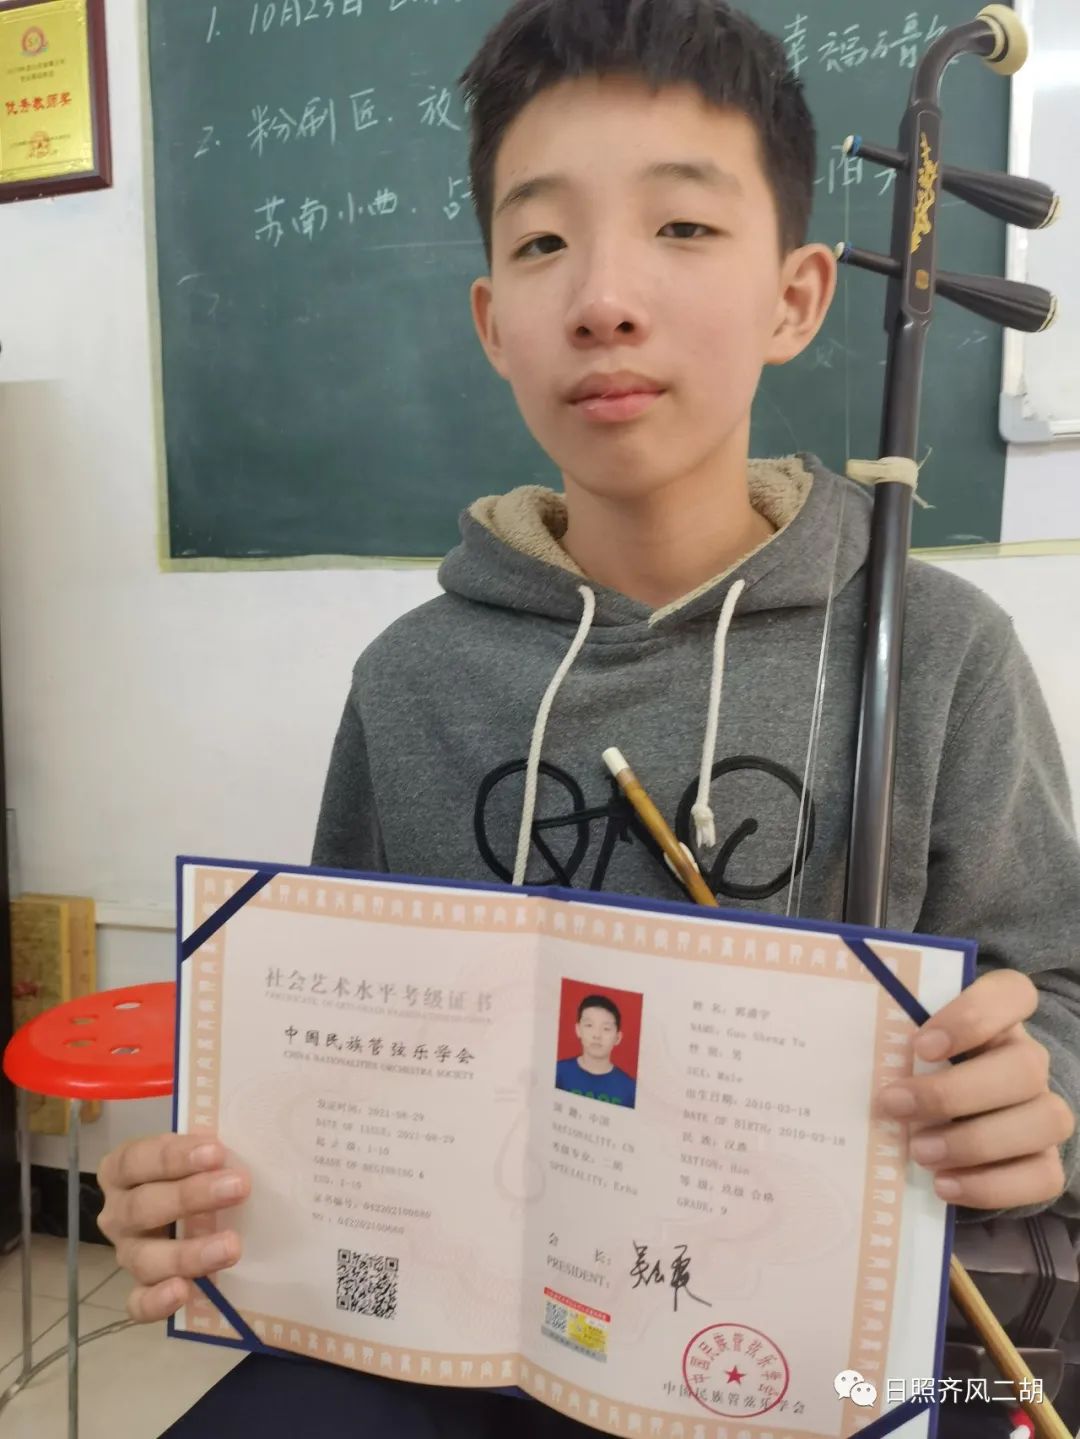 优秀教师奖
1. 10月23日
幸福
2. 粉刷匠. 放
苏南小曲.
社会艺术水平考级证书
中国民族管弦乐学会
CHINA NATIONALITIES ORCHESTRA SOCIETY
发证时间：2021-08-29
DATE OF ISSUE：2021-08-29
起止级：1-10
GRADE OF BEGINNING &
END：1-10
证书编号：042202100680
NO：042202100680
姓名：
NAME：Guo Sheng Yu
性别：男
SEX：Male
出生日期：2010-02-18
DATE OF BIRTH：2010-02-18
国籍：中国
NATIONALITY：CN
民族：汉族
NATION：Han
考级专业：二胡
SPECIALITY：Erhu
等级：玖级 合格
GRADE：9
会长：
PRESIDENT：
中国民族管弦乐学会
中国民族管弦乐学会
日照齐风二胡